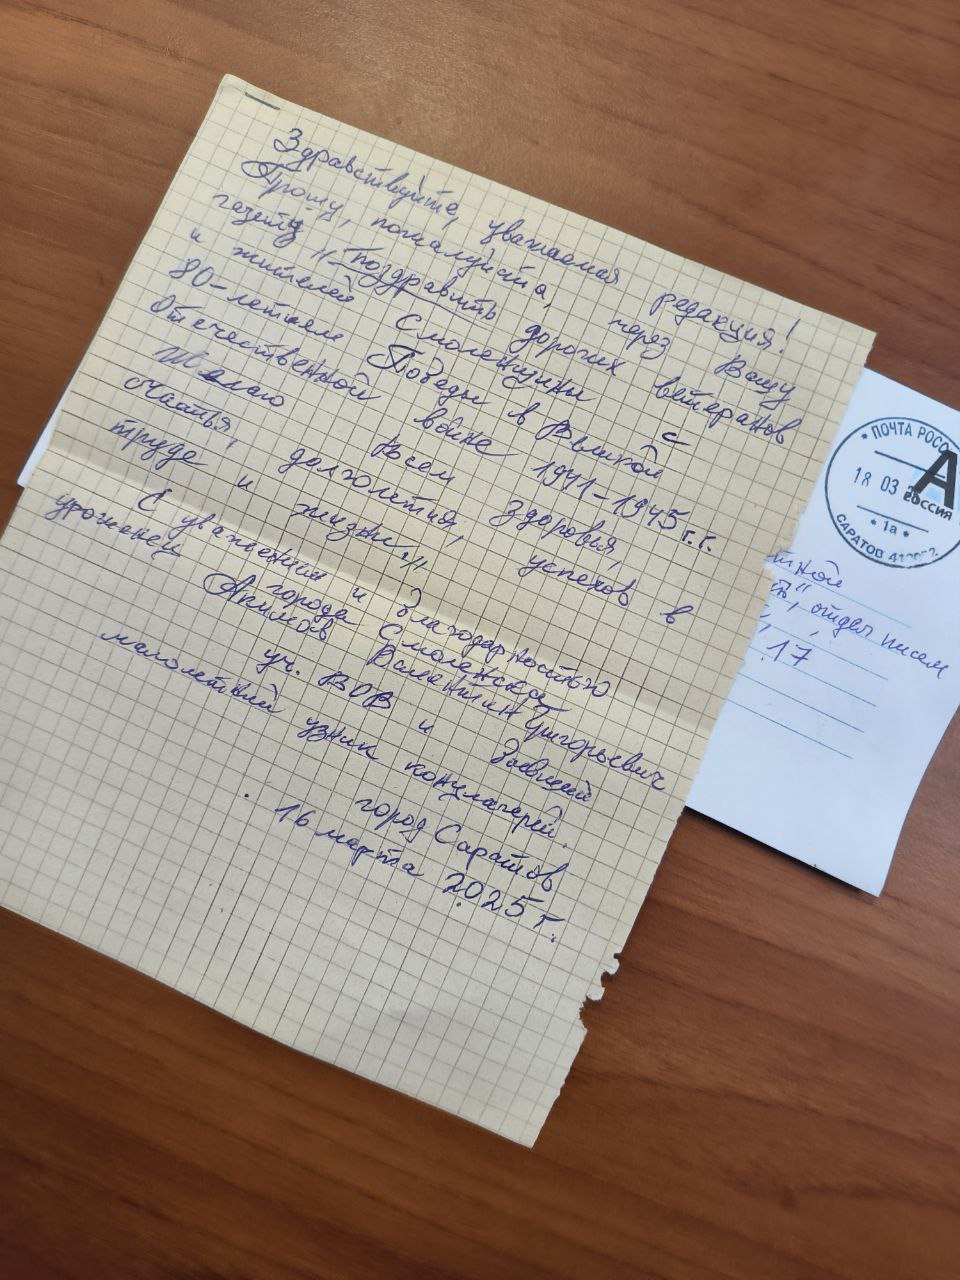 Здравствуйте, уважаемая редакция!
Прошу, пожалуйста, через Вашу
газету "поздравить дорогих ветеранов
и жителей Смоленщины с
80-летием Победы в Великой
Отечественной войне 1941-1945 г.г.
Желаю Всем здоровья,
счастья, долголетия, успехов в
труде и жизни."
С уважением и благодарностью
уроженец города Смоленска
Акимов Валентин Григорьевич
уч. ВОВ и бывший
малолетний узник концлагерей.
город Саратов
16 марта 2025 г.
ПОЧТА РОСС
А
РОССИЯ
18 03
1а
САРАТОВ
отдел писем
17